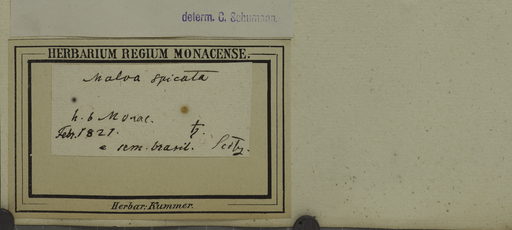 determ. C. Schumann.
HERBARIUM REGIUM MONACENSE.
Malva spicata
h. b Monac.
Feb. 1821. ♄.
e sem. brasil.
Herbar. Kummer.